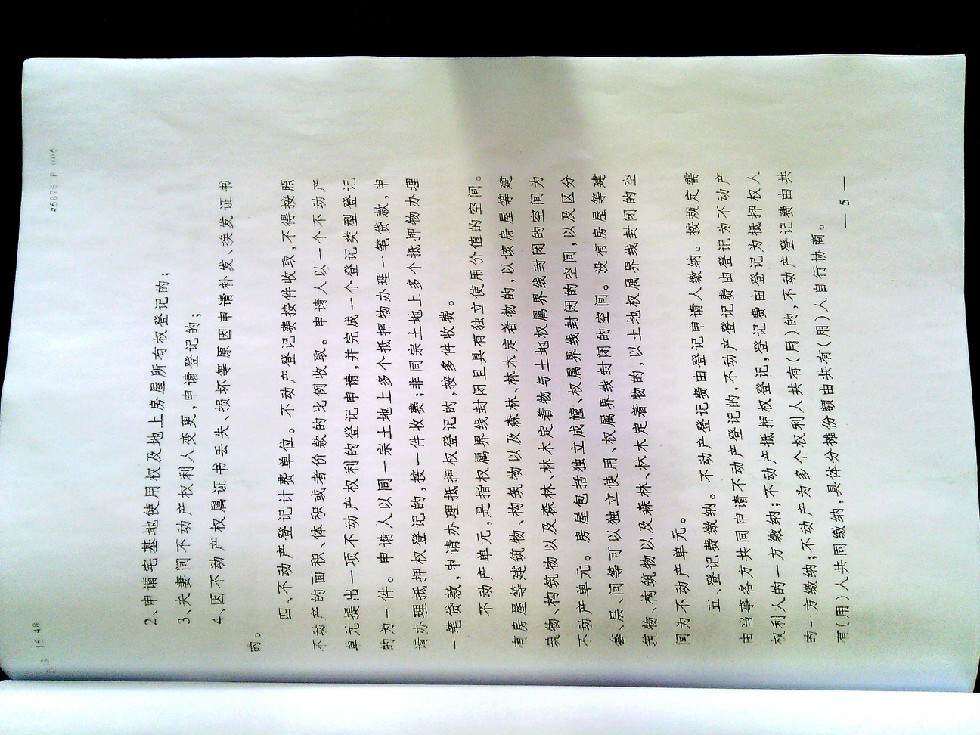 2、申请宅基地使用权及地上房屋所有权登记的；
3、夫妻间不动产权利人变更，申请登记的；
4、因不动产权属证书丢失、损坏等原因申请补发、换发证书
的。
四、不动产登记计费单位。不动产登记费按件收取，不得按照
不动产的面积、体积或者价款的比例收取。申请人以一个不动产
单元提出一项不动产权利的登记申请，并完成一个登记类型登记
的为一件。申请人以同一宗土地上多个抵押物办理一笔贷款，申
请办理抵押权登记的，按一件收费；非同宗土地上多个抵押物办理
一笔贷款，申请办理抵押权登记的，按多件收费。
不动产单元，是指权属界线封闭且具有独立使用价值的空间。
有房屋等建筑物、构筑物以及森林、林木定着物的，以该房屋等建
筑物、构筑物以及森林、林木定着物与土地权属界线封闭的空间为
不动产单元。房屋包括独立成幢、权属界线封闭的空间，以及区分
套、层、间等可以独立使用、权属界线封闭的空间。没有房屋等建
筑物、构筑物以及森林、林木定着物的，以土地权属界线封闭的空
间为不动产单元。
五、登记费缴纳。不动产登记费由登记申请人缴纳。按规定需
由当事各方共同申请不动产登记的，不动产登记费由登记为不动产
权利人的一方缴纳；不动产抵押权登记，登记费由登记为抵押权人
的一方缴纳；不动产为多个权利人共有（用）的，不动产登记费由共
有（用）人共同缴纳，具体分摊份额由共有（用）人自行协商。
— 5 —